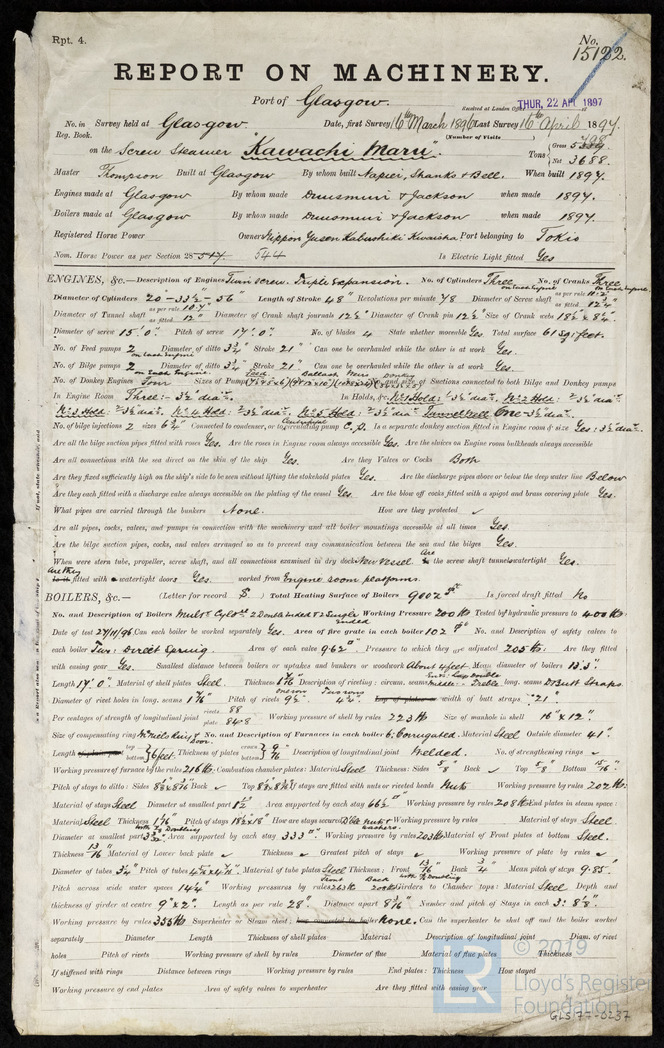 Rpt. 4.
No. 15122.
REPORT ON MACHINERY.
Port of Glasgow.
Received at London Office THUR, 22 APL 1897
No. in Survey held at Glasgow. Date, first Survey 16th March 1896 Last Survey 16th April 1897.
Reg. Book. (Number of Visits
on the Screw Steamer "Kawachi Maru". Tons Gross
Net 3688.
Master Thompson Built at Glasgow By whom built Napier, Shanks & Bell. When built 1897.
Engines made at Glasgow By whom made Dunsmuir & Jackson when made 1897.
Boilers made at Glasgow By whom made Dunsmuir & Jackson when made 1897.
Registered Horse Power Owners Nippon Yusen Kabushiki Kwaisha Port belonging to Tokio
Nom. Horse Power as per Section 28 547 544 Is Electric Light fitted Yes
ENGINES, &c.—Description of Engines Twin screw. Triple Expansion. No. of Cylinders Three on each Engine No. of Cranks Three on each Engine.
Diameter of Cylinders 20-33½-56" Length of Stroke 48" Revolutions per minute 78 Diameter of Screw shaft as per rule as fitted 12¾"
Diameter of Tunnel shaft as per rule 10.7" as fitted 12" Diameter of Crank shaft journals 12½" Diameter of Crank pin 12½" Size of Crank webs
Diameter of screw 15'.0" Pitch of screw 17'.0". No. of blades 4 State whether moveable Yes. Total surface 61 sq. feet.
No. of Feed pumps 2 on each Engine Diameter of ditto 3¾" Stroke 21" Can one be overhauled while the other is at work Yes.
No. of Bilge pumps 2 on each Engine Diameter of ditto 3¾" Stroke 21" Can one be overhauled while the other is at work Yes.
No. of Donkey Engines Four Sizes of Pumps and size of Suctions connected to both Bilge and Donkey pumps
In Engine Room Three:- 3½" diar. In Holds, &c. No 1 Hold: 2 3½" diar. No 2 Hold: 2 3½" diar.
No 3 Hold: 2 3½" diar. No 4 Hold: 2 3½" diar. No 5 Hold: 2 3½" diar. Tunnel well One 3½" diar.
No. of bilge injections 2 sizes 6½" Connected to condenser, or to circulating pump C.P. Is a separate donkey suction fitted in Engine room & size Yes: 3½" diar.
Are all the bilge suction pipes fitted with roses Yes. Are the roses in Engine room always accessible Yes. Are the sluices on Engine room bulkheads always accessible
Are all connections with the sea direct on the skin of the ship Yes. Are they Valves or Cocks Both
Are they fixed sufficiently high on the ship's side to be seen without lifting the stokehold plates Yes. Are the discharge pipes above or below the deep water line Below
Are they each fitted with a discharge valve always accessible on the plating of the vessel Yes. Are the blow off cocks fitted with a spigot and brass covering plate Yes.
What pipes are carried through the bunkers None. How are they protected ✓
Are all pipes, cocks, valves, and pumps in connection with the machinery and all boiler mountings accessible at all times Yes.
Are the bilge suction pipes, cocks, and valves arranged so as to prevent any communication between the sea and the bilges Yes.
When were stern tube, propeller, screw shaft, and all connections examined in dry dock New vessel. Are the screw shaft tunnels watertight Yes.
Are they fitted with watertight doors Yes worked from Engine room platforms.
BOILERS, &c.— (Letter for record S.) Total Heating Surface of Boilers 9002 sq ft Is forced draft fitted No
No. and Description of Boilers Mult. Cyldr. 2 Double Ended & 2 Single Ended Working Pressure 200 lb Tested by hydraulic pressure to 400 lb.
Date of test 27/11/96 Can each boiler be worked separately Yes. Area of fire grate in each boiler 102 sq ft No. and Description of safety valves to
each boiler Two: Direct Spring. Area of each valve 9.62 □". Pressure to which they are adjusted 205 lb. Are they fitted
with easing gear Yes. Smallest distance between boilers or uptakes and bunkers or woodwork About 4 feet. Mean diameter of boilers 13'.3".
Length 17'.0". Material of shell plates Steel. Thickness Description of riveting: circum. seams Ends: Lap Double Middle: Treble long. seams D Butt Straps.
Diameter of rivet holes in long. seams Pitch of rivets Lap of plates or width of butt straps 21".
Per centages of strength of longitudinal joint rivets 88 plate 84.8 Working pressure of shell by rules 223 lb Size of manhole in shell 16"x12".
Size of compensating ring McNeil's Ring & Door. No. and Description of Furnaces in each boiler 6: Corrugated. Material Steel Outside diameter 41".
Length of plain part top bottom 6 feet. Thickness of plates crown bottom 9/16" Description of longitudinal joint Welded. No. of strengthening rings ✓
Working pressure of furnace by the rules 216 lb. Combustion chamber plates: Material Steel Thickness: Sides 5/8" Back ✓ Top 5/8" Bottom 15/16".
Pitch of stays to ditto: Sides Back ✓ Top If stays are fitted with nuts or riveted heads Nuts Working pressure by rules 202 lb.
Material of stays Steel Diameter at smallest part 1½" Area supported by each stay 66½ □" Working pressure by rules 208 lb End plates in steam space:
Material Steel Thickness Pitch of stays 18½x18" How are stays secured Dble nuts & washers. Working pressure by rules Material of stays Steel
Diameter at smallest part Area supported by each stay 333 □". Working pressure by rules 203 lb Material of Front plates at bottom Steel.
Thickness 13/16 Material of Lower back plate ✓ Thickness ✓ Greatest pitch of stays ✓ Working pressure of plate by rules ✓
Diameter of tubes 3¼" Pitch of tubes Material of tube plates Steel Thickness: Front 13/16" Back 3/4" Mean pitch of stays 9.85"
Pitch across wide water spaces 14¼" Working pressures by rules Girders to Chamber tops: Material Steel Depth and
thickness of girder at centre 9"x2". Length as per rule 28" Distance apart Number and pitch of Stays in each 3: 8⅛".
Working pressure by rules 355 lb Superheater or Steam chest; how connected to boiler None. Can the superheater be shut off and the boiler worked
separately Diameter Length Thickness of shell plates Material Description of longitudinal joint Diam. of rivet
holes Pitch of rivets Working pressure of shell by rules Diameter of flue Material of flue plates Thickness
If stiffened with rings Distance between rings Working pressure by rules End plates: Thickness How stayed
Working pressure of end plates Area of safety valves to superheater Are they fitted with easing gear
© 2019
LR Lloyd's Register
Foundation
GLS177-0237